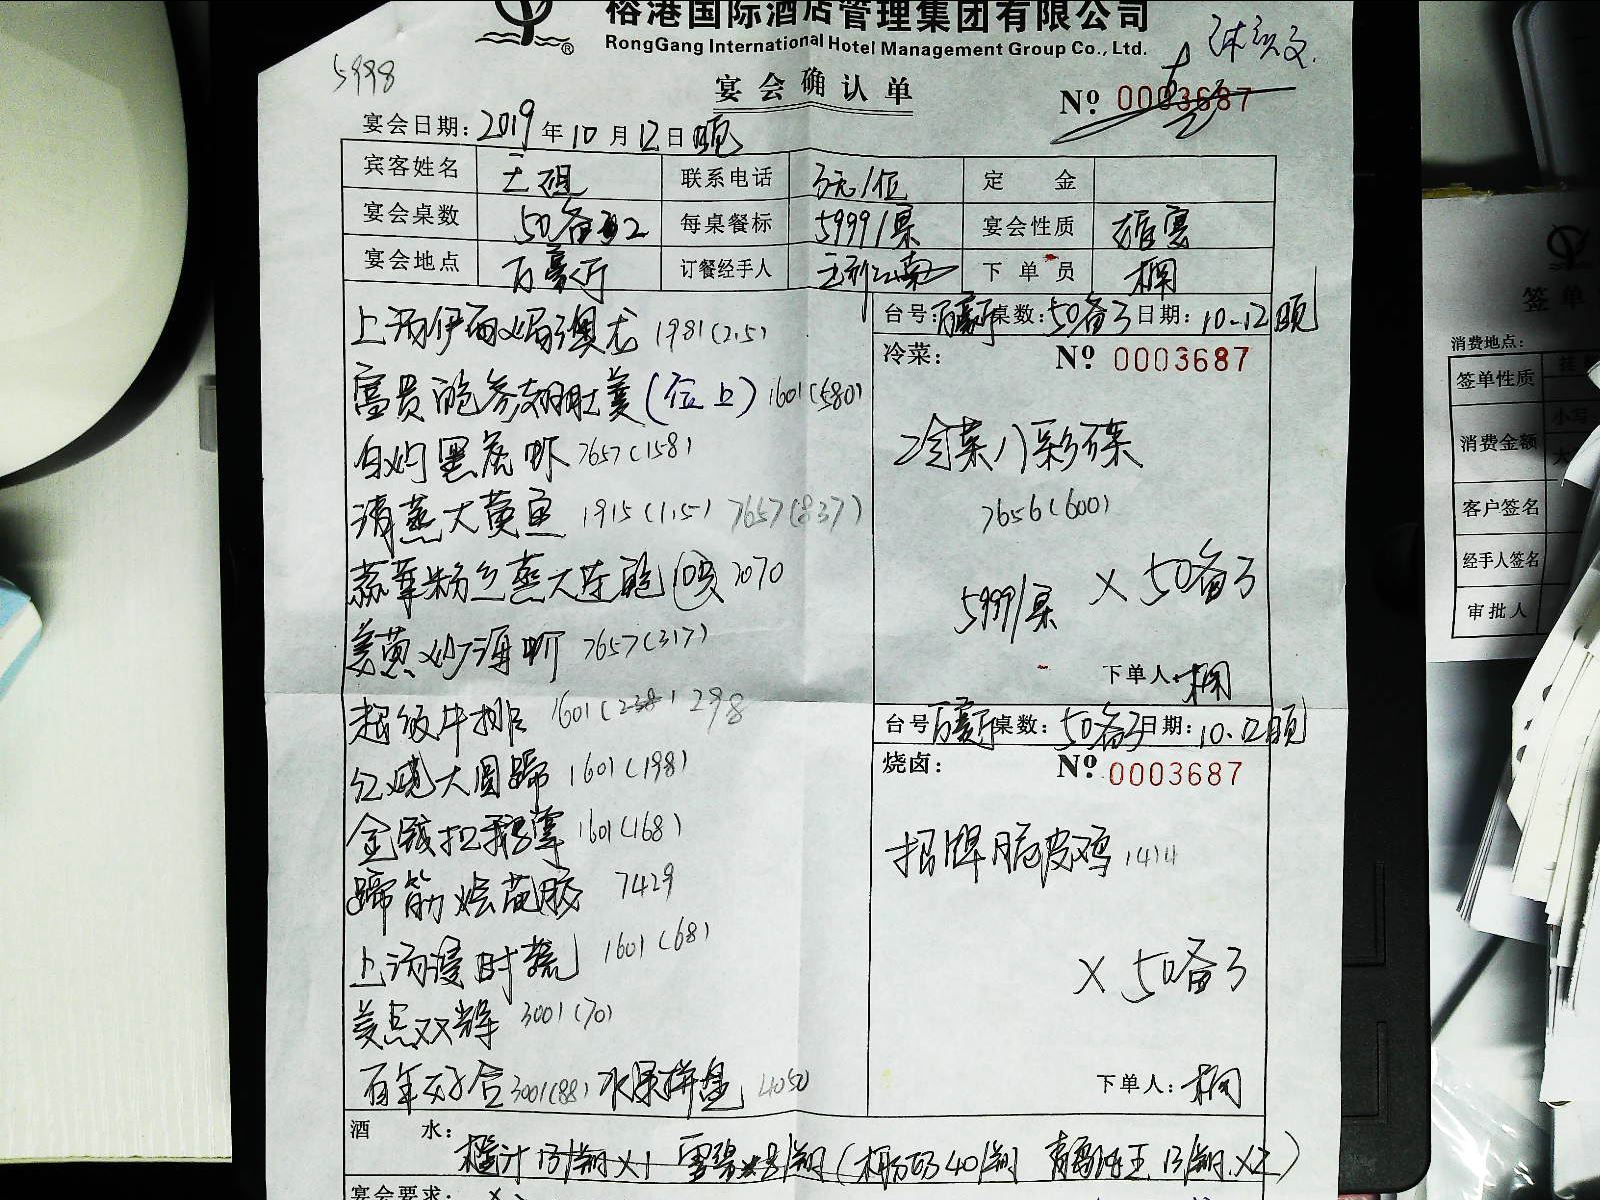 榕港国际酒店管理集团有限公司
RongGang International Hotel Management Group Co., Ltd.
5998
宴会确认单
№ 0003687
宴会日期: 2019年10月12日晚
宾客姓名
联系电话
定 金
宴会桌数 50备2
每桌餐标 5999/桌
宴会性质
宴会地点 百豪厅
订餐经手人
下单员 桐
上汤伊面焗澳龙 1981(2.5)
富贵鲍参翅肚羹(位上) 1601(580)
白灼黑虎虾 7657(158)
清蒸大黄鱼 1915(1.5) 7657(837)
蒜茸粉丝蒸大连鲍 10只 2070
姜葱炒海虾 7657(317)
超级牛排 1601( 298
红烧大圆蹄 1601(198)
金钱扣鹅掌 1601(168)
蹄筋烩花胶 7429
上汤浸时蔬 1601(68)
美点双辉 3001(70)
百年好合 3001(88) 水果拼盘 4050
台号: 百豪厅 桌数: 50备3 日期: 10.12晚
冷菜: № 0003687
冷菜八彩碟
7656(600)
5999/桌 × 50备3
下单人: 桐
台号 百豪厅 桌数: 50备3 日期: 10.12晚
烧卤: № 0003687
招牌脆皮鸡 1414
× 50备3
下单人: 桐
酒 水:
橙汁 13/ ×1 雪碧 8/ ( 40/ 13/ ×2)
宴会要求:
签单
消费地点:
签单性质
消费金额
小写
客户签名
经手人签名
审批人